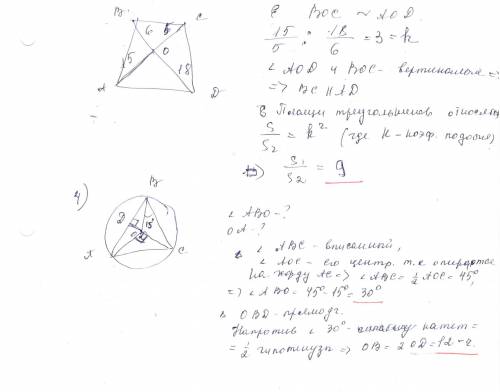 B C
6 5
O
15 18
A D
BOC ~ AOD.
15/5 : 18/6 = 3 = k
∠ AOD и BOC - вертикальные =>
=> BC || AD
Площади треугольников относятся
S/S2 = k² (где k - коэф. подобия)
S1/S2 = 9
4)
B
D 15°
O
A C
∠ ABO - ?
OA - ?
∠ ABC - вписанный,
∠ AOC - его центр. т.к опирается
на хорду AC => ∠ ABC = 1/2 AOC = 45°,
=> ∠ ABO = 45° - 15° = 30°
OBD - прямоуг.
Напротив ∠ 30° - катет =
= 1/2 гипотенузы => OB = 2 OD = 12